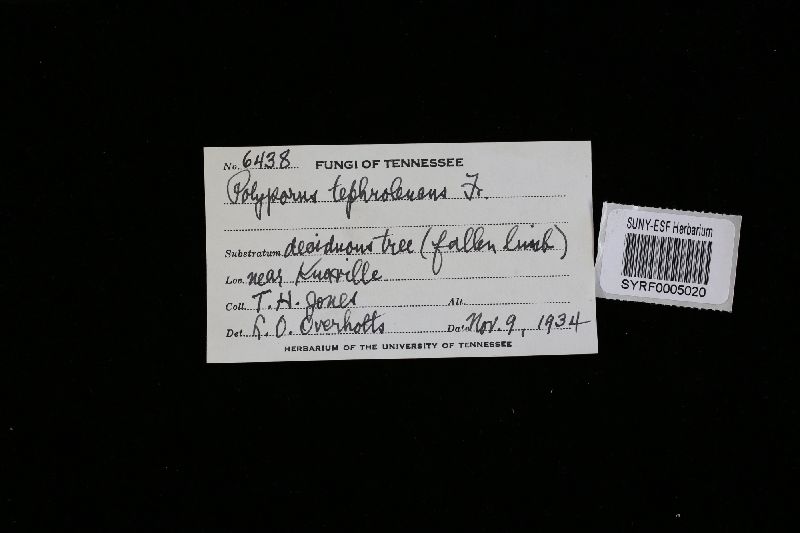 No. 6438 FUNGI OF TENNESSEE
Polyporus tephroleucus Fr.
Substratum deciduous tree (fallen limb)
Loc. near Knoxville
Coll. T. H. Jones Alt.
Det. L. O. Overholts Dat. Nov. 9, 1934
HERBARIUM OF THE UNIVERSITY OF TENNESSEE
SUNY-ESF Herbarium
SYRF0005020